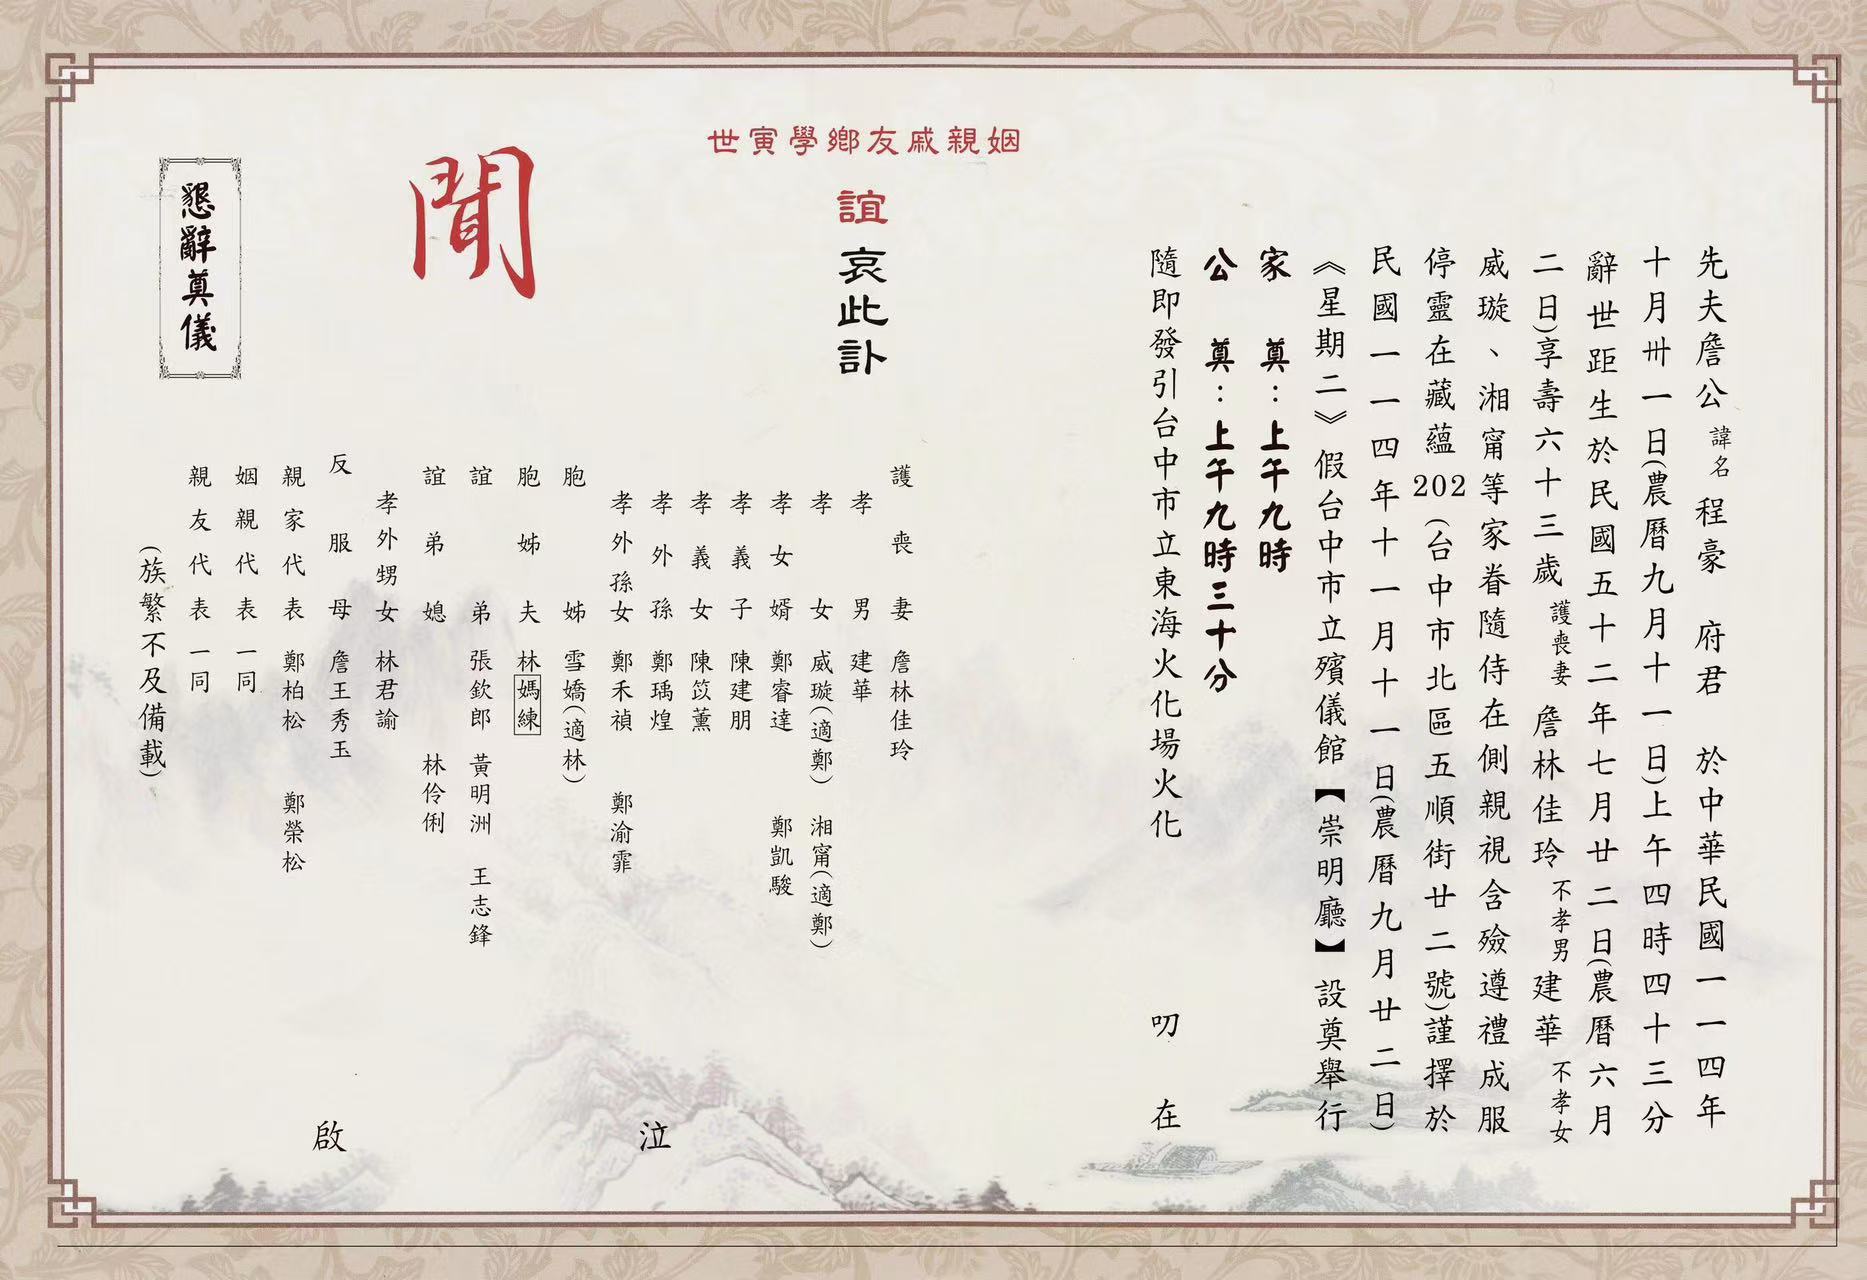 先夫詹公諱名程豪 府君 於中華民國一一四年
十月卅一日(農曆九月十一日)上午四時四十三分
辭世距生於民國五十二年七月廿二日(農曆六月
二日)享壽六十三歲 護喪妻 詹林佳玲 不孝男 建華 不孝女
威璇、湘甯等家眷隨侍在側親視含殮遵禮成服
停靈在藏蘊202(台中市北區五順街廿二號)謹擇於
民國一一四年十一月十一日(農曆九月廿二日)
《星期二》假台中市立殯儀館【崇明廳】設奠舉行
家 奠:上午九時
公 奠:上午九時三十分
隨即發引台中市立東海火化場火化 叨 在
姻親戚友鄉學寅世
誼 哀此訃
聞
護喪妻 詹林佳玲
孝男 建華
孝女 威璇(適鄭) 湘甯(適鄭)
孝女婿 鄭睿達 鄭凱駿
孝義子 陳建朋
孝義女 陳苡薰
孝外孫 鄭瑀煌
孝外孫女 鄭禾禎 鄭渝霏
胞姊 雪嬌(適林)
胞姊夫 林媽練
誼弟 張欽郎 黃明洲 王志鋒
誼弟媳 林伶俐
孝外甥女 林君諭
反服母 詹王秀玉
親家代表 鄭柏松 鄭榮松
姻親代表一同
親友代表一同
(族繁不及備載)
泣 啟
懇辭奠儀